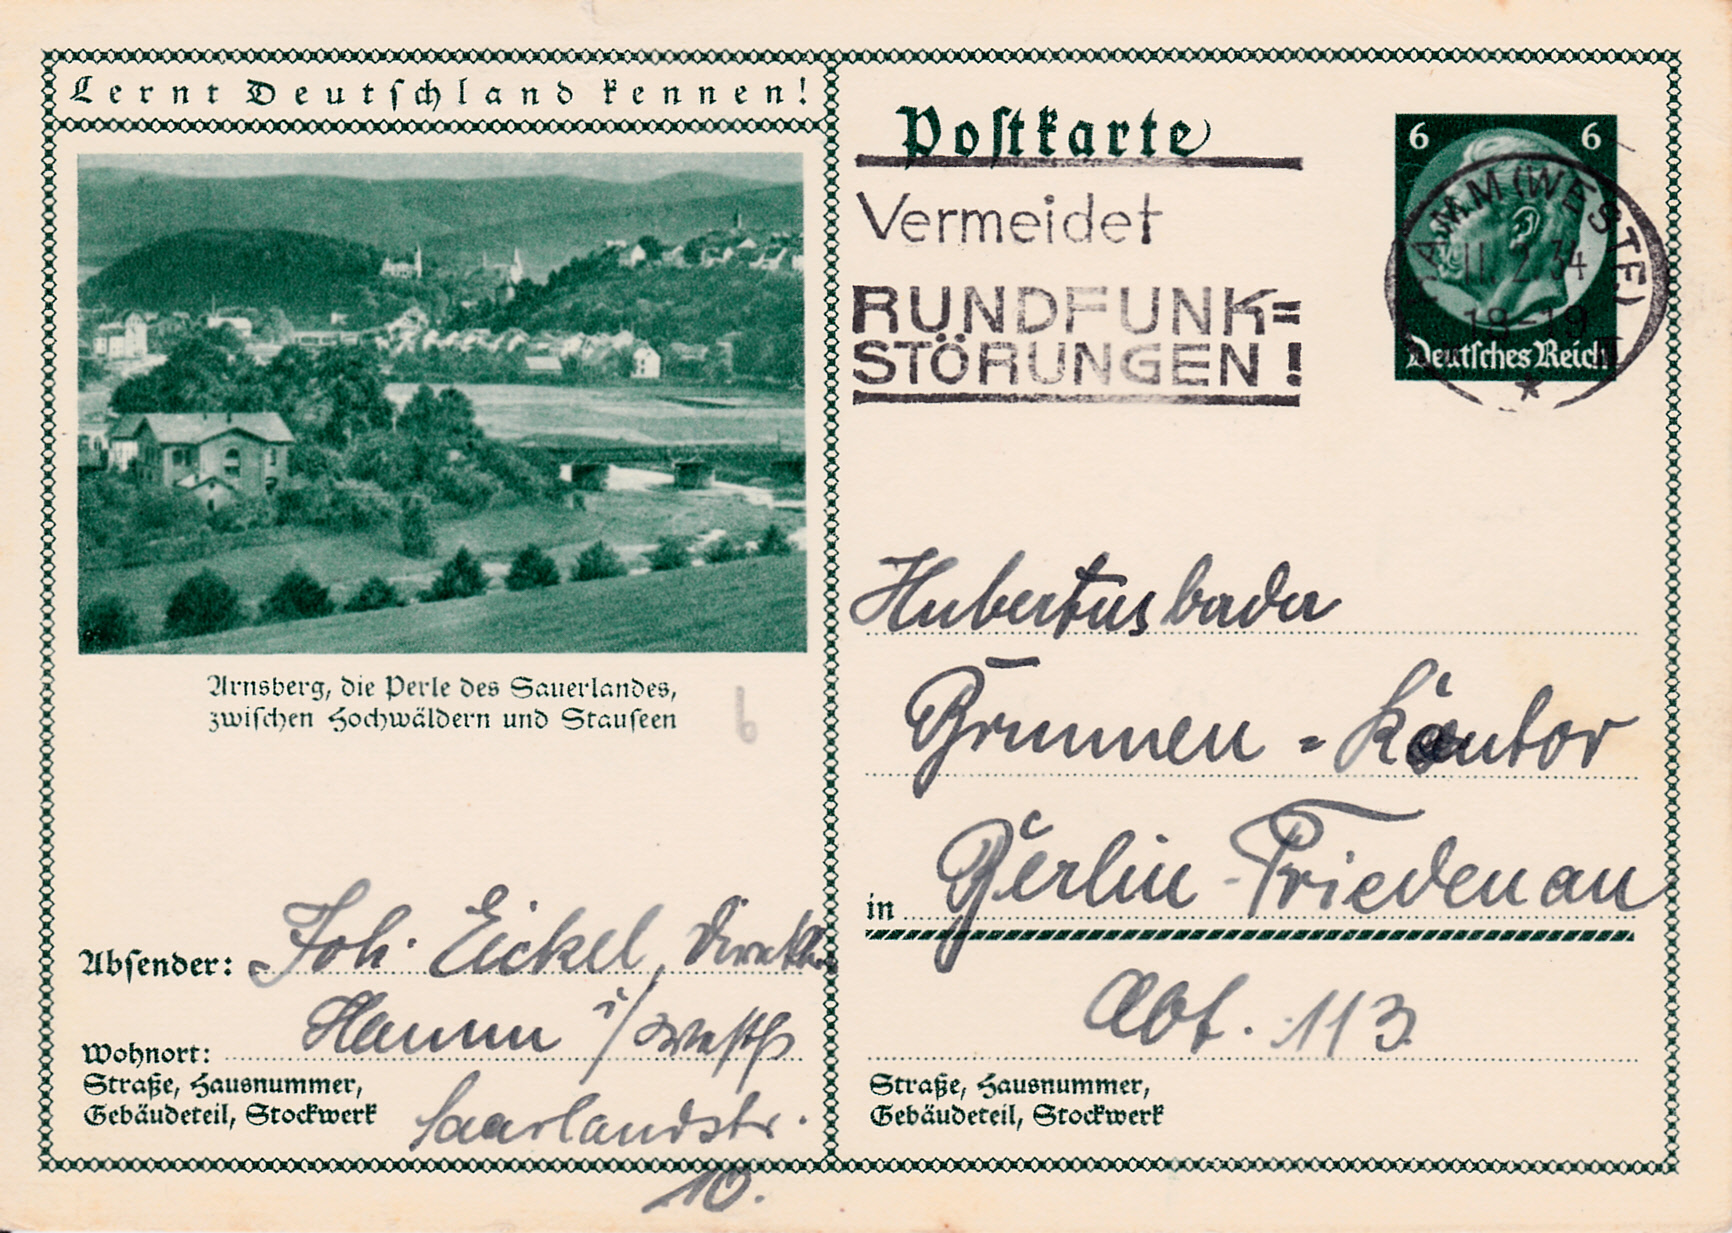 Lernt Deutschland kennen!
Arnsberg, die Perle des Sauerlandes,
zwischen Hochwäldern und Stauseen
b
Absender: Joh. Eickel, Direktor
Wohnort: Hamm i/Westf
Straße, Hausnummer,
Gebäudeteil, Stockwerk
Saarlandstr.
10.
Postkarte
Vermeidet
RUNDFUNK=
STÖRUNGEN!
6 6
HAMM (WESTF)
11.2.34
18-19
Deutsches Reich
Hubertusbader
Brunnen-Kontor
in Berlin-Friedenau
Abt. 113
Straße, Hausnummer,
Gebäudeteil, Stockwerk